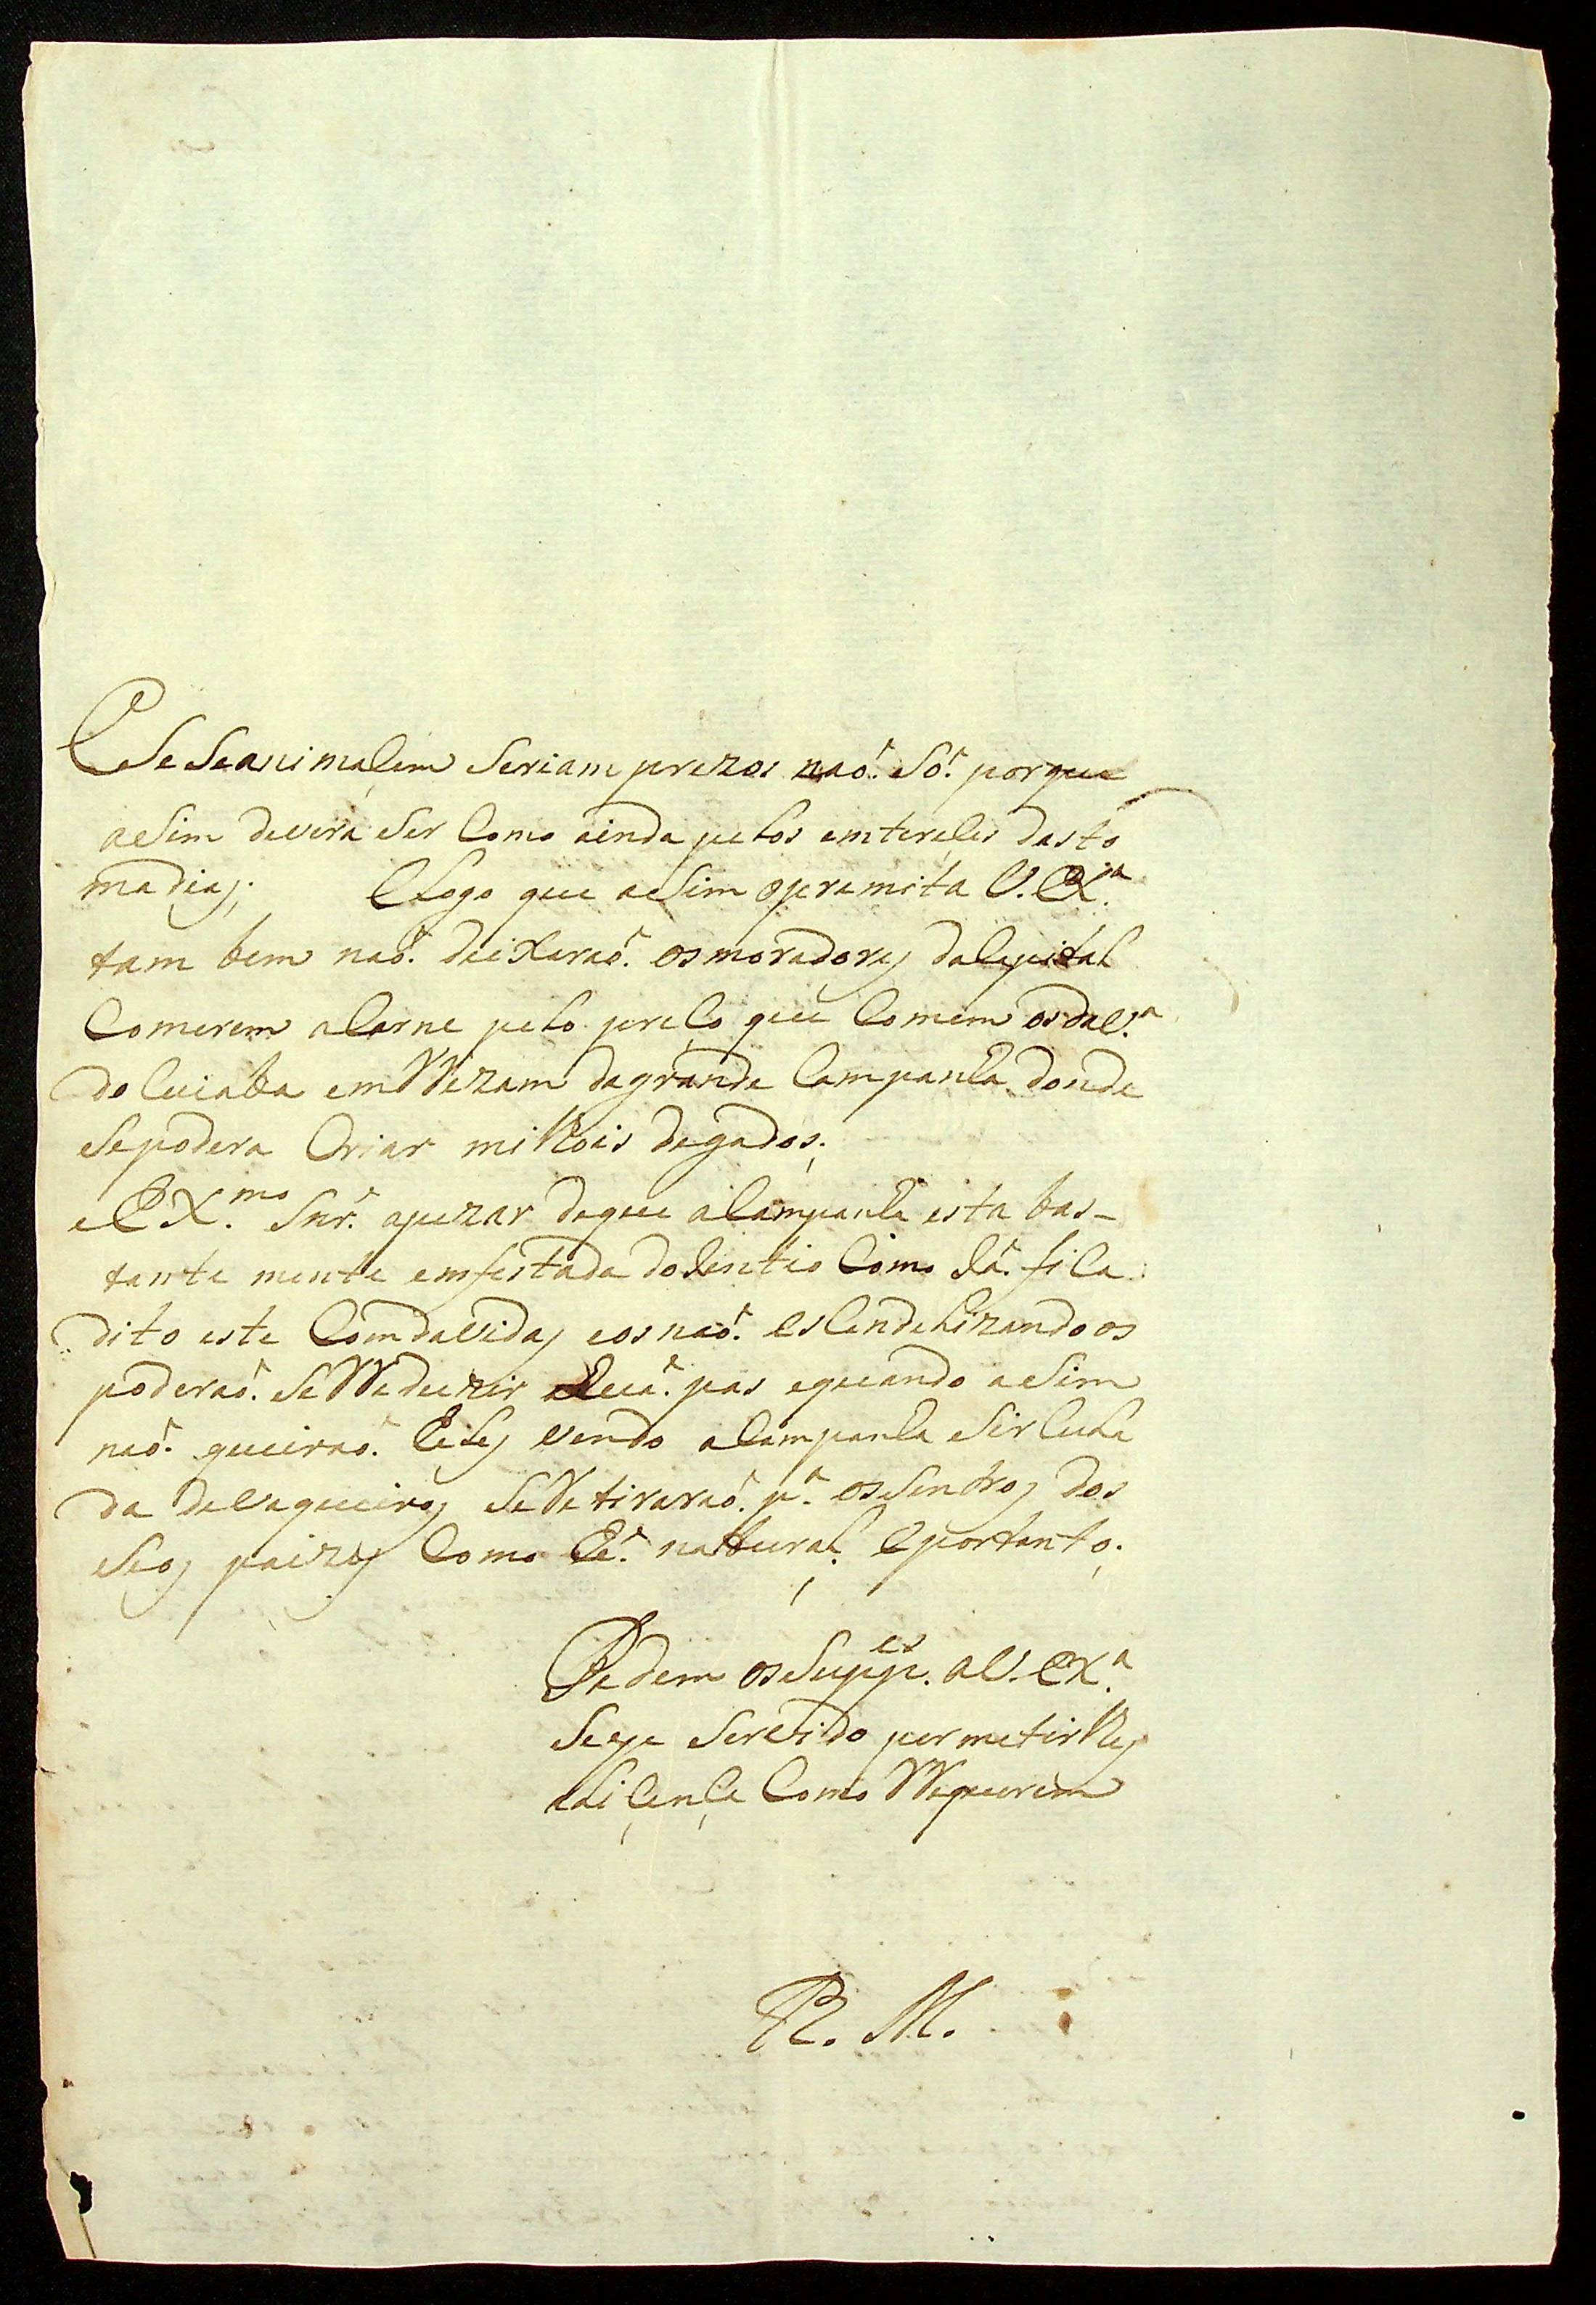 E Se Seanimaçem Seriam prezos naõ. Só. porque
aSim devera Ser Como ainda pelos emtereçes dasto
madias; E Logo que aSim opremita V. EX.ª
tam bem naõ. deiXaraõ. osmoradores daCapital
Comerem aCarne pelo preço que Comem osdaV.ª
do Cuiaba emRezam dagrande Campanha donde
Sepodera Criar milhois degados;
e EX.mo Snr. apezar deque aCampanha esta bas-
tante mente emfestada doJentio Como Já. fiCa
dito este Comdavidas eosnaõ. esCendelizandoos
poderaõ. SeReduzir pas equando aSim
naõ. queiraõ. Eeles vendo aCampanha SirCula
da deVaqueiros SeRetiraraõ. p.ª osSentros dos
Seos paizes Como hé. natural. Eportanto;
Pedem osSupp.es aV. EX.ª
Seje Servido permetirlhes
aLiçença Como Requerem
R. M.